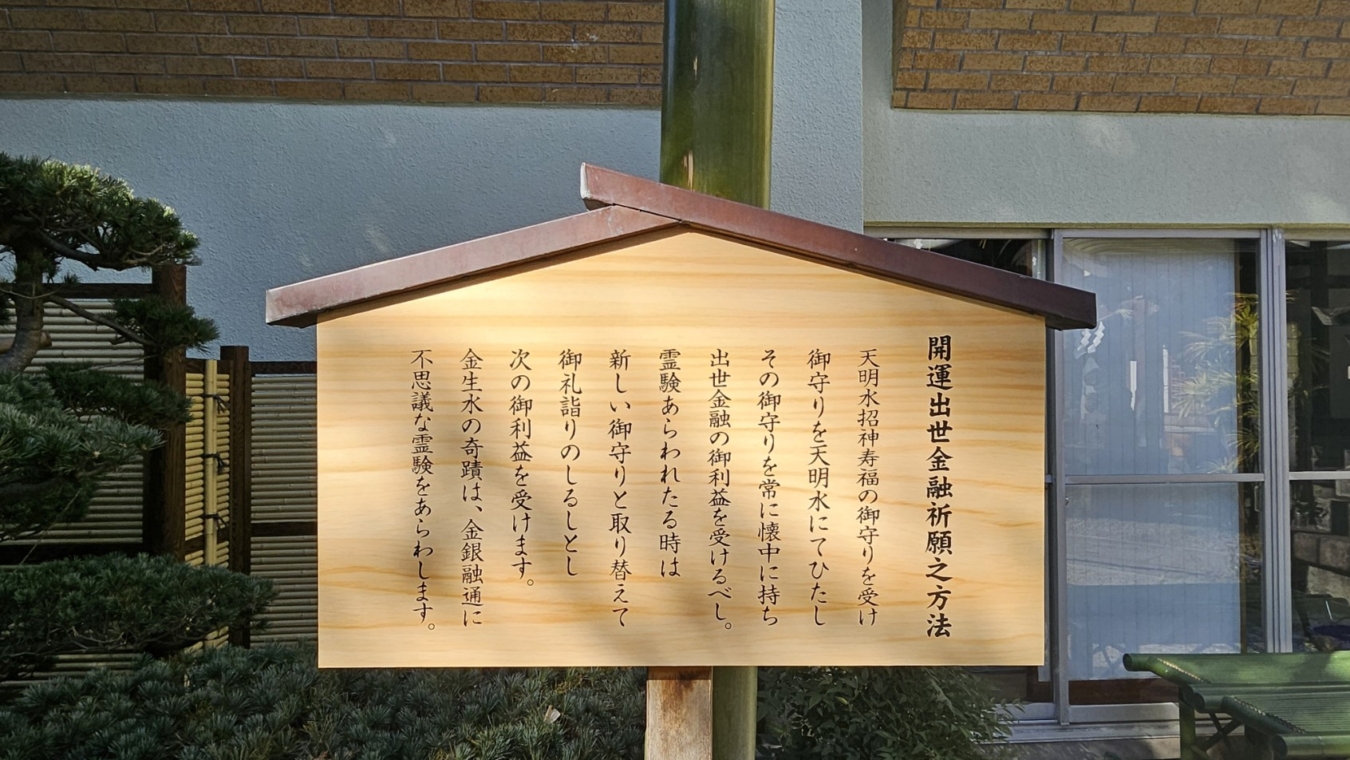 開運出世金融祈願之方法
天明水招神寿福の御守りを受け
御守りを天明水にてひたし
その御守りを常に懐中に持ち
出世金融の御利益を受けるべし。
霊験あらわれたる時は
新しい御守りと取り替えて
御礼詣りのしるしとし
次の御利益を受けます。
金生水の奇蹟は、金銀融通に
不思議な霊験をあらわします。